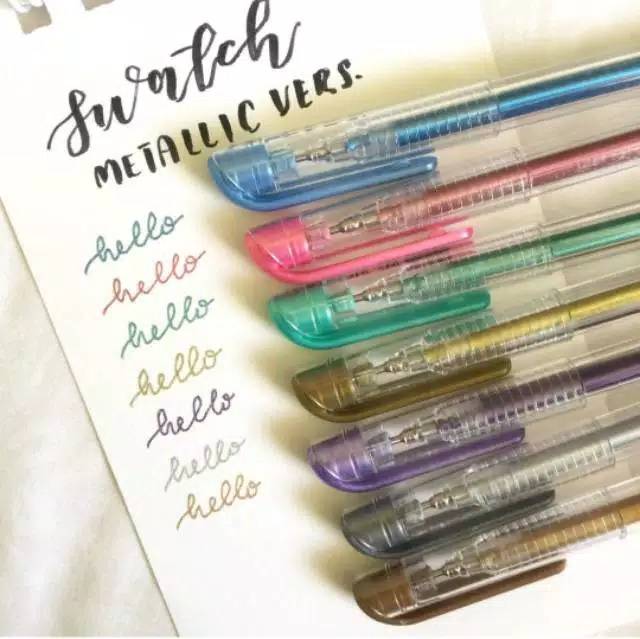 swatch
METALLIC VERS.
hello
hello
hello
hello
hello
hello
hello